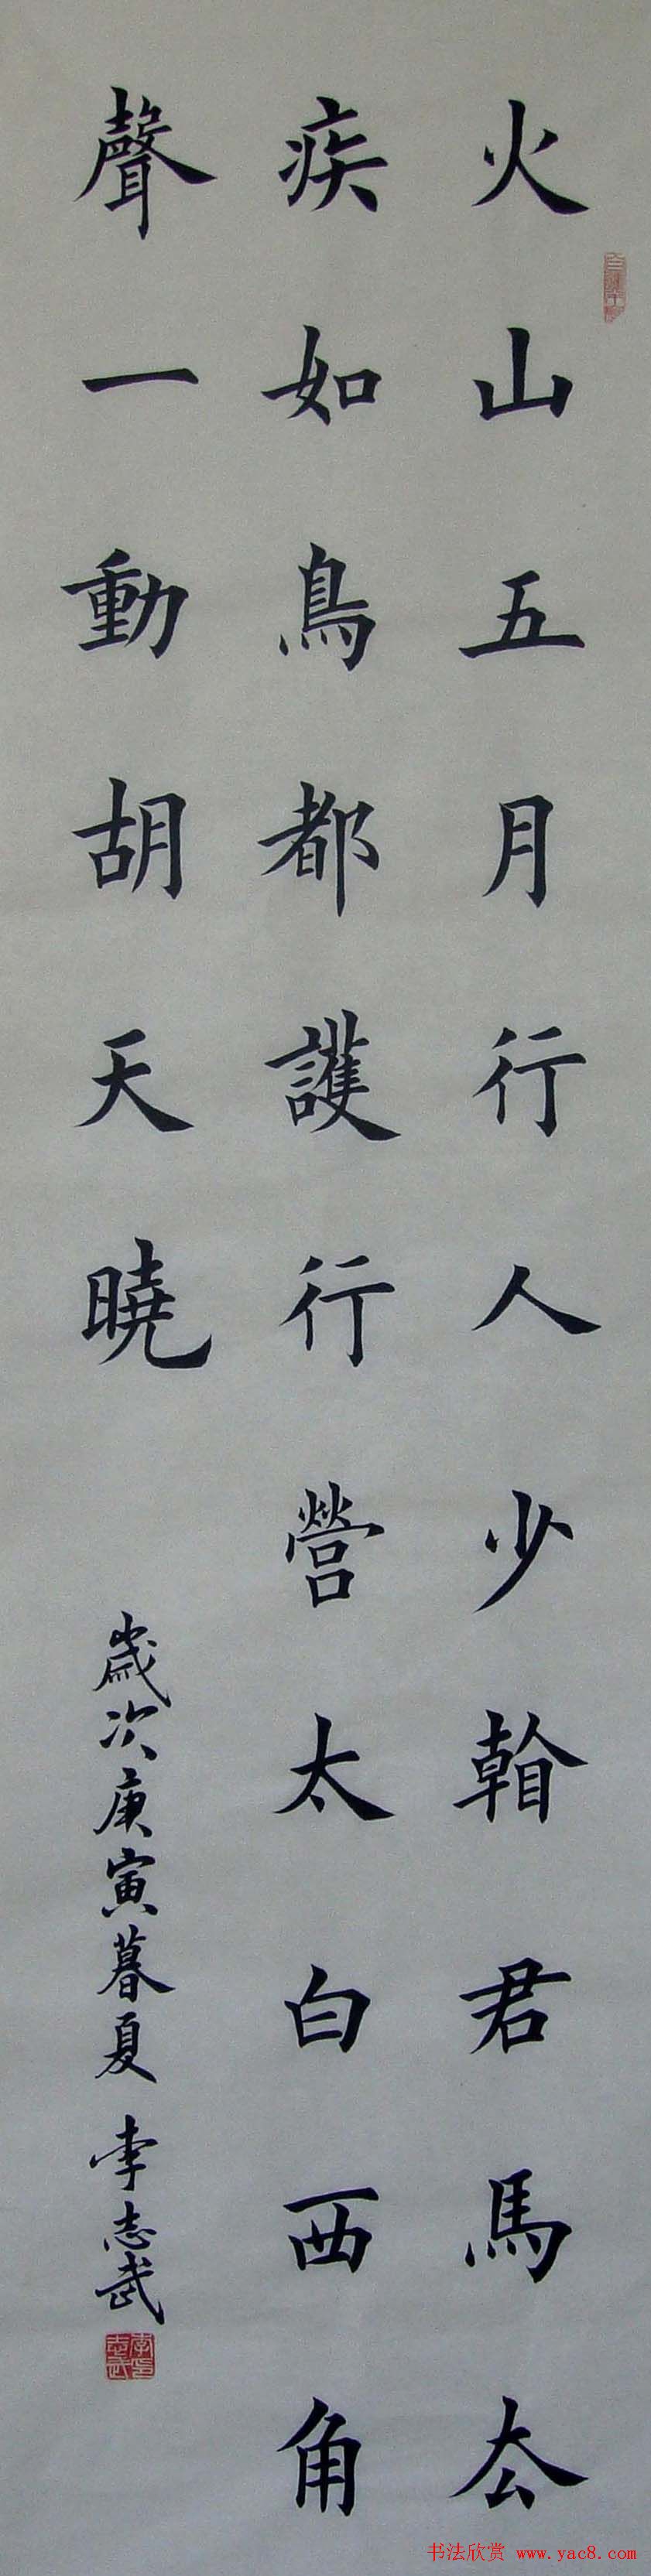 火山五月行人少看君馬厺
疾如鳥都護行營太白西角
聲一動胡天曉
歲次庚寅暮夏 李志武
李印志武
书法欣赏 www.yac8.com